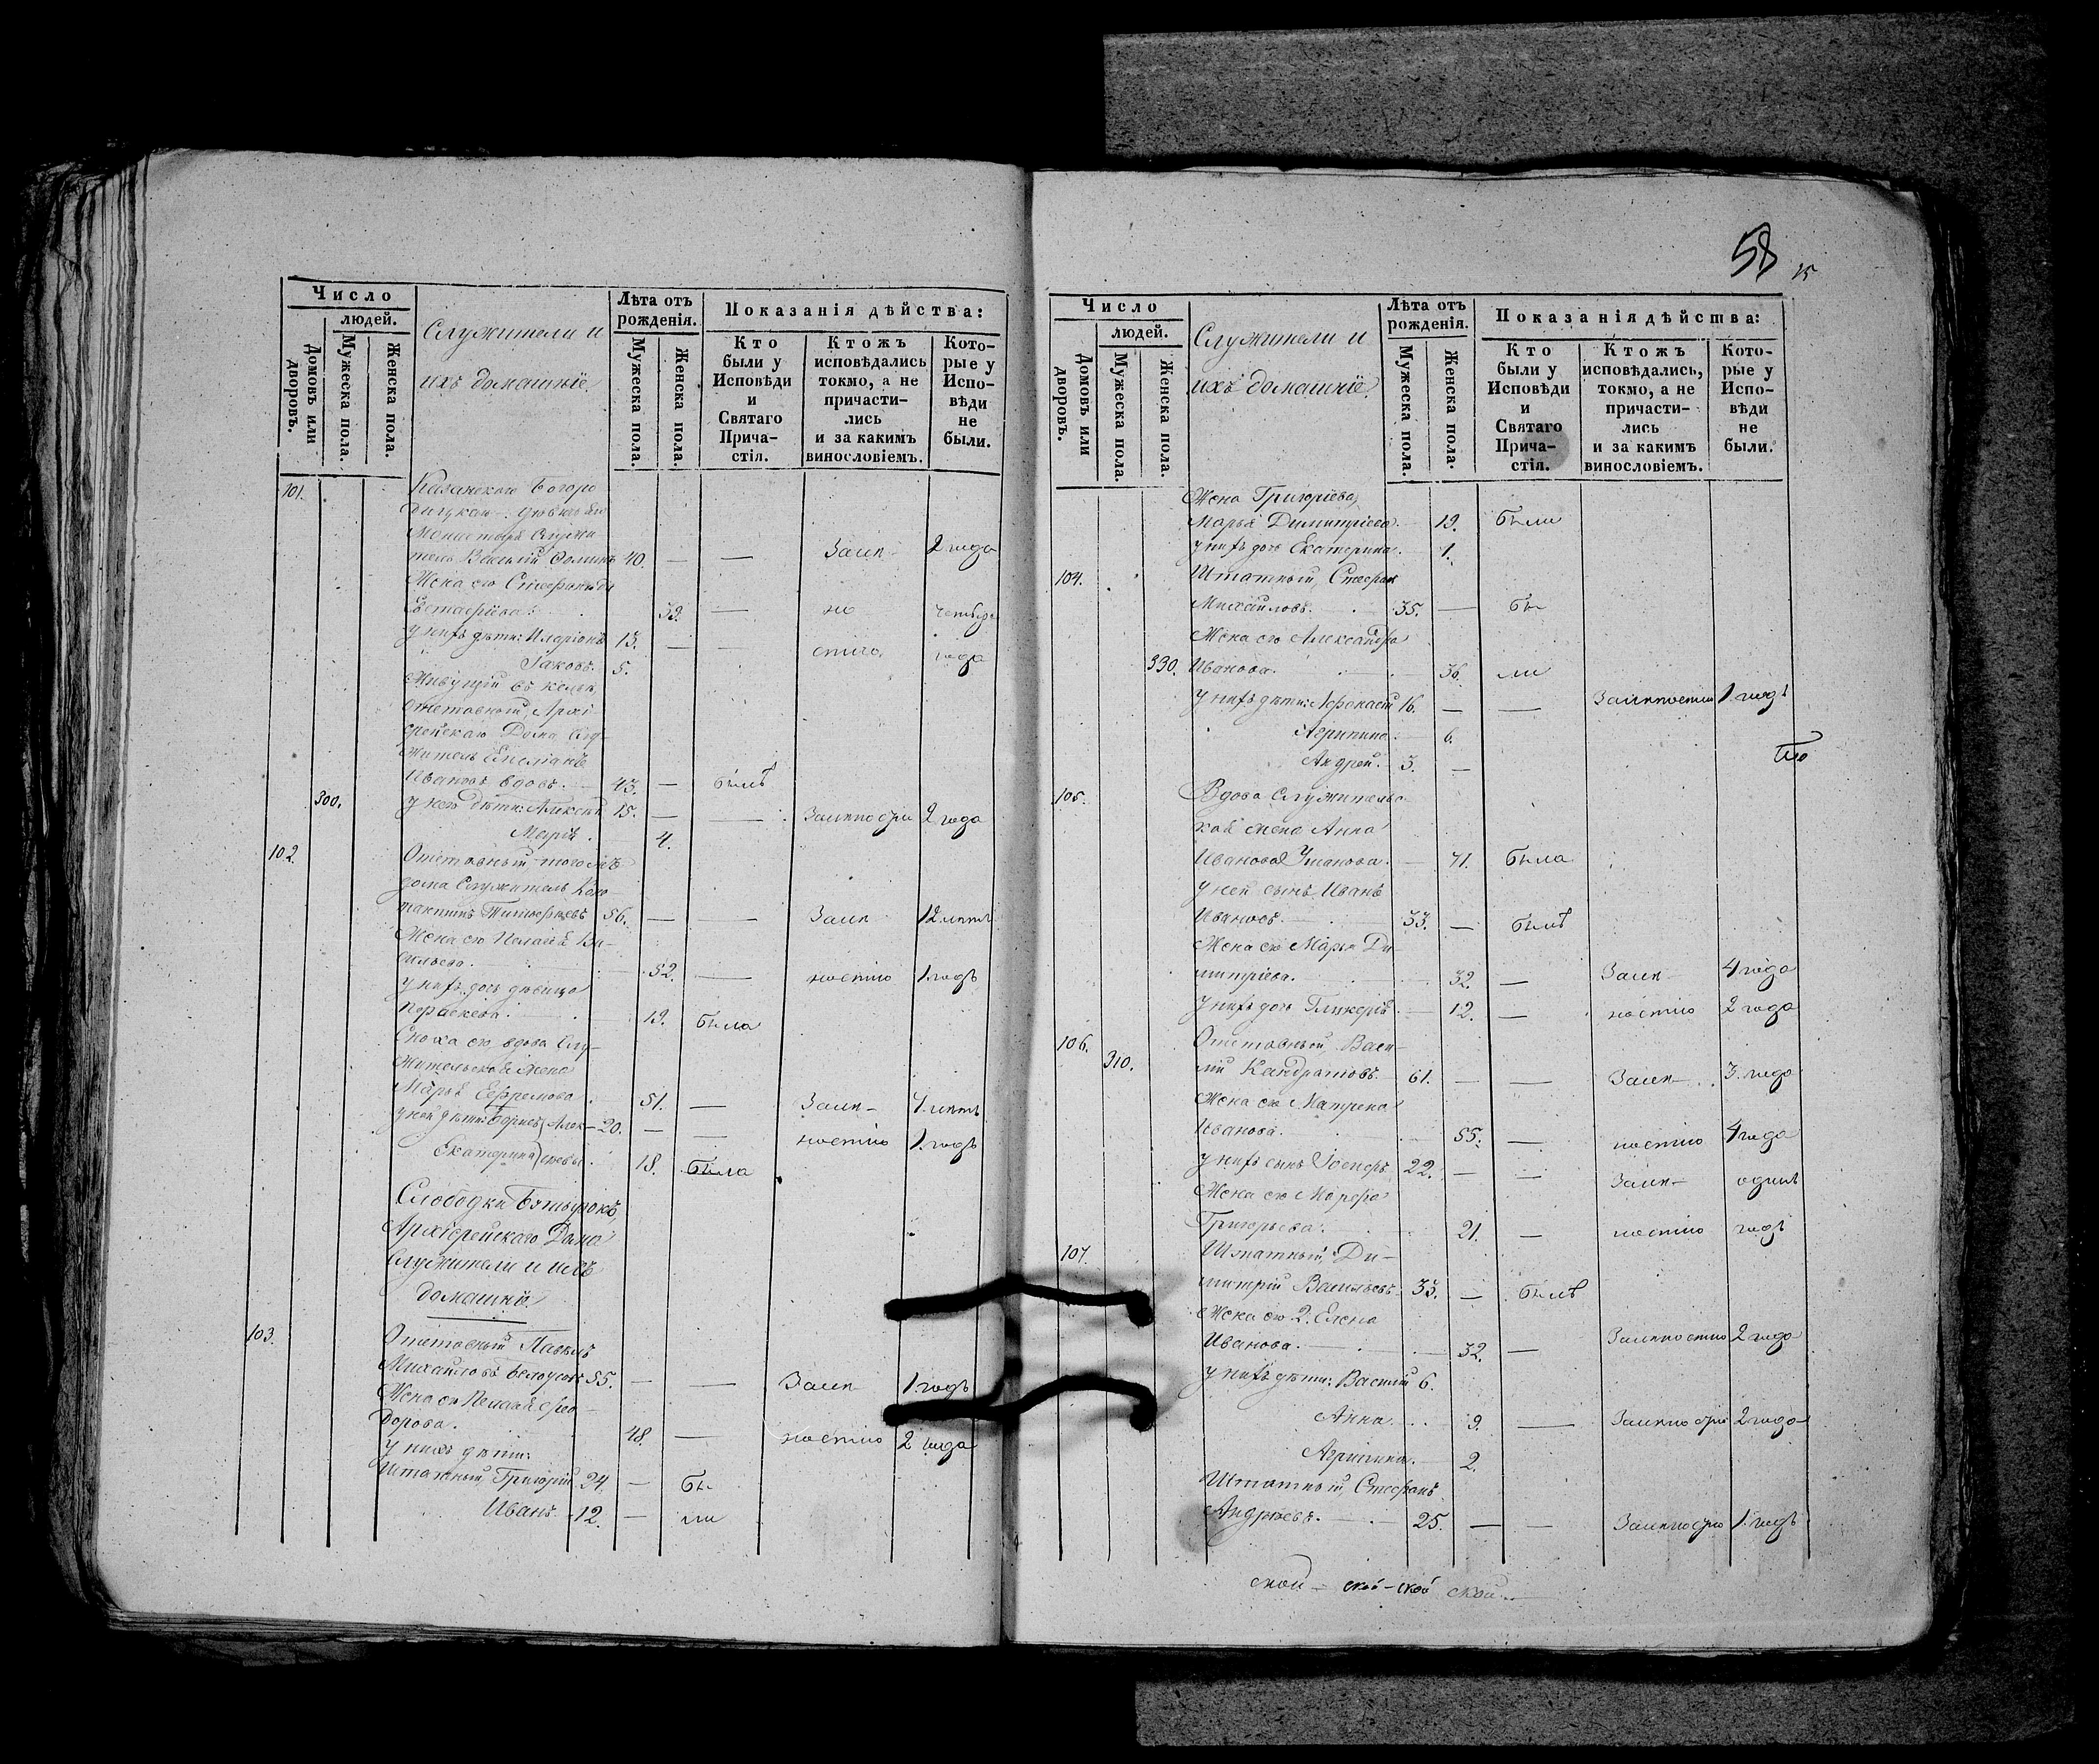 Число
людей.
Домовъ или дворовъ.
Мужеска пола.
Женска пола.
Служители и
ихъ домашніе
Лѣта отъ рожденія.
Мужеска пола.
Женска пола.
Показанія дѣйства:
Кто были у Исповѣди и Святаго Прича- стія.
Ктожъ исповѣдались токмо, а не причасти- лись и за какимъ винословіемъ.
Кото- рые у Испо- вѣди не были.
101.
Казанскаго Богоро
дицкаго
Монастыря Служи
тель Василій 40. — — Заип- 2 года
Жена его Стефанида
Евстафіева. 39. — но четыре
у нихъ дѣти: Иларіонъ 13. — — стію года
Іаковъ. 5.
Живущій въ кельи
отставной, Архі-
ерейскаго Дома Слу-
житель Емеліанъ
Ивановъ вдовъ. 43. — былъ
300. у него дѣти: Алексѣй 15. — — 2 года
Марія. 4.
102. Отставный того жъ
дома Служитель Кон-
стантинъ Тимофеевъ 56. — — Заип 12 лѣтъ
Жена его Пелагія Ва-
сильева. 52. — ностію 1. годъ
у нихъ дочь дѣвица
Параскева. 19. была
Сноха его вдова Слу-
жительская жена
Марья Ефремова 51. — Заип- 4. лѣтъ
у ней дѣти: Борисъ Алек- 20. — — ностію 1. годъ
Екатерина сѣевы. 18. была
Слободки Бутырокъ,
Архіерейскаго Дома
Служители и ихъ
домашніе
103. Отставный Павелъ
Михайловъ Белоусовъ 55. — — Заип 1. годъ
Жена его Пелагія Фео-
дорова. 48. — ностію 2 года
у нихъ дѣти:
Штатный, Григорій 24. — бы-
Иванъ. 12. — ли
58
15
Число
людей.
Домовъ или дворовъ.
Мужеска пола.
Женска пола.
Служители и
ихъ домашніе.
Лѣта отъ рожденія.
Мужеска пола.
Женска пола.
Показанія дѣйства:
Кто были у Исповѣди и Святаго Прича- стія.
Ктожъ исповѣдались, токмо, а не причасти- лись и за какимъ винословіемъ.
Кото- рые у Испо- вѣди не были.
Жена Григорьева,
Марья Димитріева. — 19. были
у нихъ дочь Екатерина. 1.
104. Штатный, Стефанъ
Михайловъ. 35. — бы
Жена его Александра
330. Иванова. 36. ли
у нихъ дѣти: Афанасій 16. — — 1 годъ
Агрипина. 6.
Андрей. 3. —
105. Вдова Служительс-
кая жена Анна
Иванова Уланова. — 71. была
у ней сынъ Иванъ
Ивановъ. 33. — былъ
Жена его Марья Ди-
митріева. 32. — Заип- 4 года
у нихъ дочь Гликерія. — 12. — ностію 2 года
106. Отставной, Васи-
310. лій Кандратовъ. 61. — — Заип- 3. года
Жена его Матрена
Иванова. 55. — ностію 4 года
у нихъ сынъ Іосифъ. 22. — — Заип- одинъ
Жена его Марфа
Григорьева. 21. — ностію годъ
107. Штатный, Ди-
митрій Васильевъ. 33. — былъ
Жена его 2. Елена
Иванова. 32. — Заипностію 2 года
у нихъ дѣти: Василій 6.
Анна. 9. — 2 года
Агрипина. 2.
Штатный, Стефанъ
Андреевъ. 25. — — 1. годъ
ской - ской - ской ской